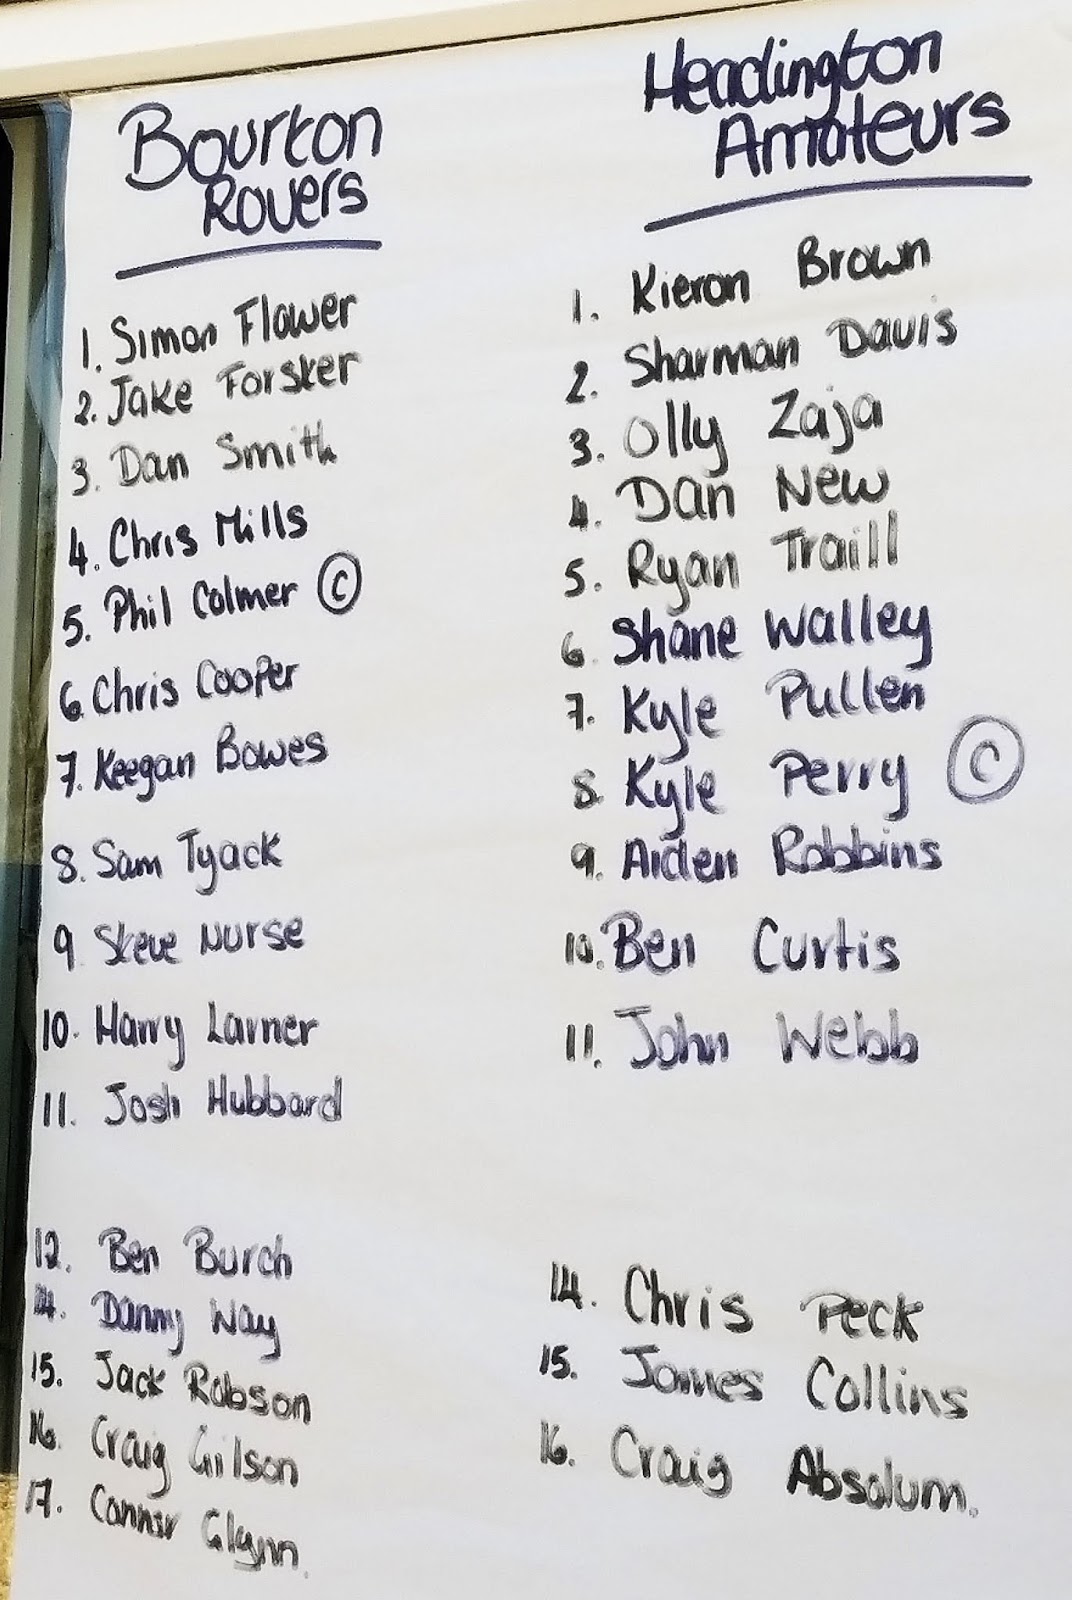 Bourton
Rovers
1. Simon Flower
2. Jake Forsker
3. Dan Smith
4. Chris Mills
5. Phil Colmer ©
6. Chris Cooper
7. Keegan Bowes
8. Sam Tyack
9 Steve Nurse
10. Harry Larner
11. Josh Hubbard
12. Ben Burch
14. Danny Way
15. Jack Robson
16. Craig Gilson
17. Connor Glynn.
Headington
Amateurs
1. Kieron Brown
2. Sharman Davis
3. Olly Zaja
4. Dan New
5. Ryan Traill
6. Shane Walley
7. Kyle Pullen
8. Kyle Perry ©
9. Aiden Robbins
10. Ben Curtis
11. John Webb
14. Chris Peck
15. James Collins
16. Craig Absolum.